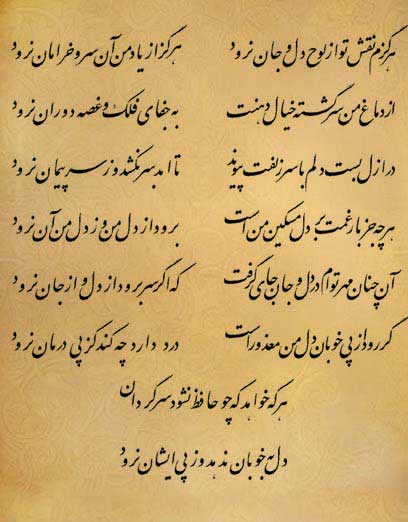 هرگزم نقش تو از لوح دل و جان نرود هرگز از یاد من آن سرو خرامان نرود
از دماغ من سرگشته خیال دهنت به جفای فلک و غصه دوران نرود
در ازل بست دلم با سر زلفت پیوند تا ابد سر نکشد وز سر پیمان نرود
هرچه جز بار غمت بر دل مسکین من است برود از دل من وز دل من آن نرود
آن چنان مهر توام در دل و جان جای گرفت که اگر سر برود از دل و از جان نرود
گر رود از پی خوبان دل من معذور است درد دارد چه کند کز پی درمان نرود
هر که خواهد که چو حافظ نشود سرگردان
دل به خوبان ندهد وز پی ایشان نرود